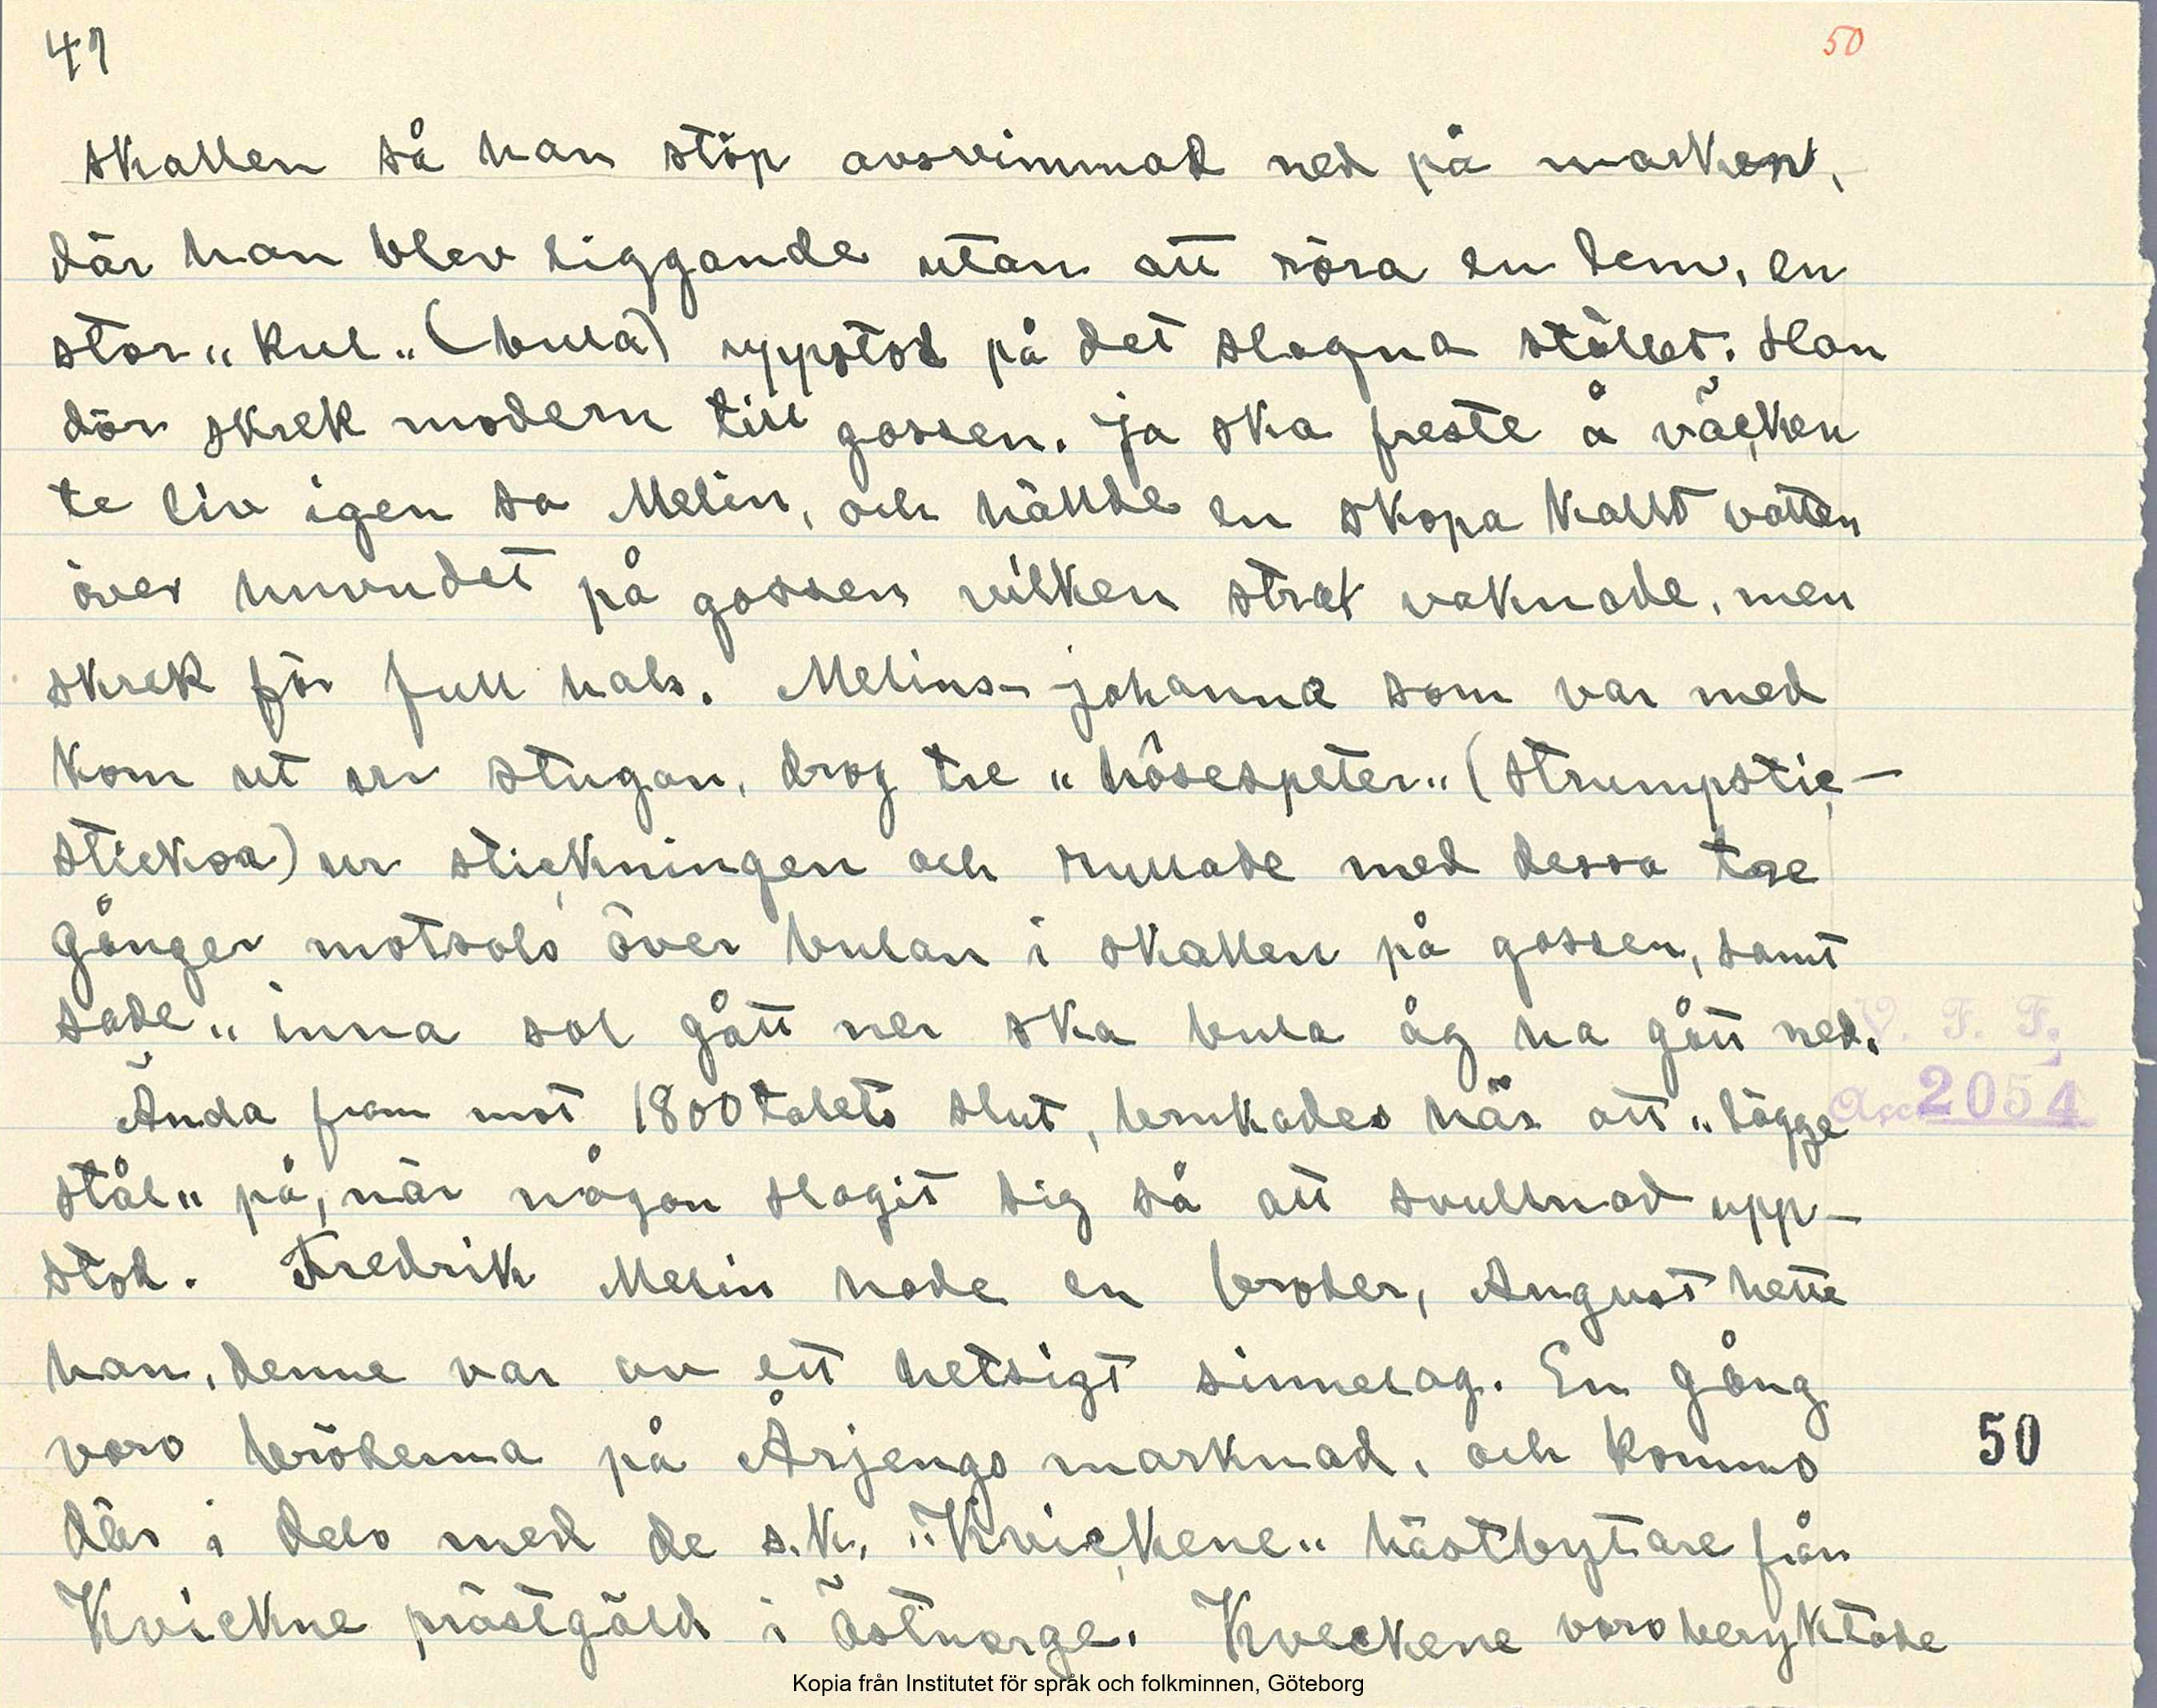 41
50
skallen så han stöp avsvimmad ned på marken,
där han blev liggande utan att röra en lem, en
stor „kul„ (bula) uppstod på det slagna stället. Han
dör skrek modern till gossen. Ja ska freste å väcken
te liv igen sa Melin, och hällde en skopa kallt vatten
över huvudet på gossen vilken strax vaknade, men
skrek för full hals. Melins-johanna som var med
kom ut ur stugan, drog tre „hôsespeter„ (strumpstic-
stickor) ur stickningen och rullade med dessa tre
gånger motsols över bulan i skallen på gossen, samt
sade „inna sol gått ner ska bula åg ha gått ned.
Ända fram mot 1800talets slut, brukades här att „lägge
stål„ på, när någon slagit sig så att svullnad upp-
stod. Fredrik Melin hade en broder, August hette
han, denne var av ett hetsigt sinnelag. En gång
voro bröderna på Årjengs marknad, och kommo
där i delo med de s.k. „Kvickene„ hästbytare från
Kvickne prästgäld i Östnorge. Kveckene voro beryktade
V. F. F.
Acc. 2054
50
Kopia från Institutet för språk och folkminnen, Göteborg